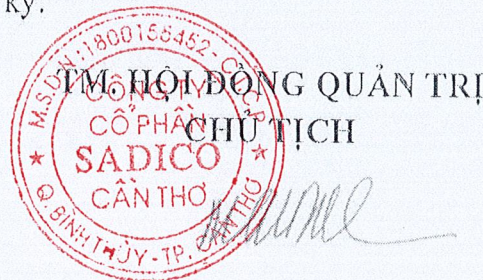 ký.
TM. HỘI ĐỒNG QUẢN TRỊ
CHỦ TỊCH
M.S.D.N:1800155452-C.T.C.P
CÔNG TY
CỔ PHẦN
SADICO
CẦN THƠ
Q. BÌNH THỦY-TP. CẦN THƠ